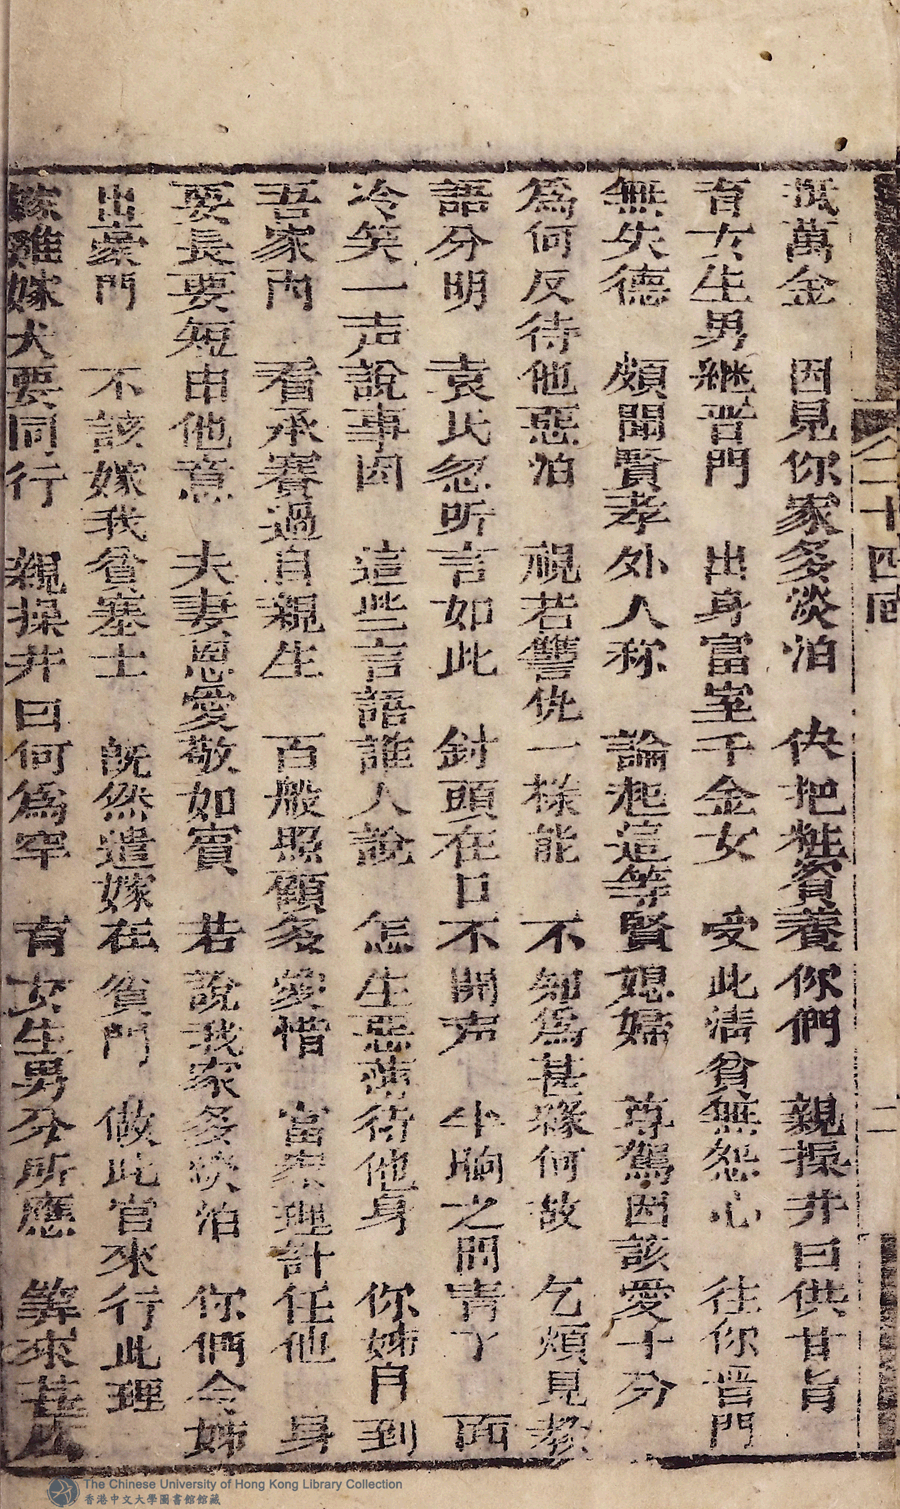 抵萬金　因見你家多淡泊　休把粧奩養你們　親操井臼供甘旨
育女生男継晋門　出身富室千金女　受此淸貧無怨心　往你晋門
無失德　頗聞賢孝外人称　論起這等賢媳婦　尊駕因該愛十分
爲何反待他惡泊　視若讐仇一様能　不知爲甚緣何故　乞煩見教
語分明　袁氏忽听言如此　封頭在口不開声　半晌之間靑了面
冷笑一声說事因　這些言語誰人說　怎生惡薄待他身　你姊自到
吾家内　看承賽過自親生　百般照顧多愛惜　當家理計任他身
要長要短由他意　夫妻恩愛敬如賓　若說我家多淡泊　你們令姊
出豪門　不該嫁我貧寒士　旣然遣嫁在貧門　做此官來行此理
嫁雞嫁犬要同行　親操井臼何爲罕　育女生男分所應　筭來
二十四囬
二
The Chinese University of Hong Kong Library Collection
香港中文大學圖書館館藏